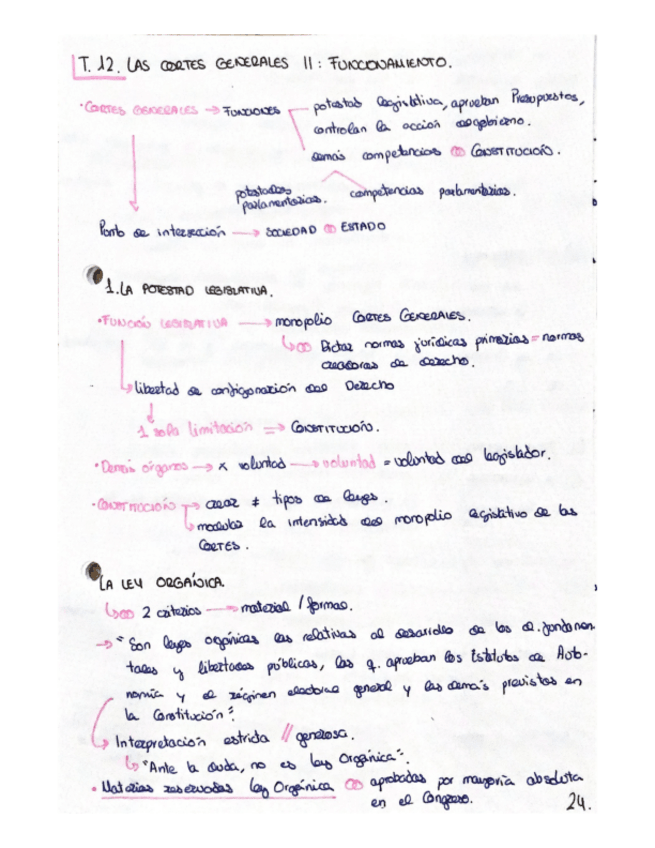 T. 12. LAS CORTES GENERALES II: FUNCIONAMIENTO.
· CORTES GENERALES → FUNCIONES
potestad legislativa, aprueban Presupuestos,
controlan la acción del gobierno.
demás competencias CONSTITUCIÓN.
potestades parlamentarias.
competencias parlamentarias.
Punto de intersección → SOCIEDAD ESTADO
1. LA POTESTAD LEGISLATIVA.
· FUNCIÓN LEGISLATIVA → monopolio CORTES GENERALES.
↳ Dictar normas jurídicas primarias = normas
creadoras de derecho.
↳ libertad de configuración del Derecho
↓
1 sola limitación ⇒ CONSTITUCIÓN.
· Demás órganos → x voluntad → voluntad = voluntad del legislador.
· CONSTITUCIÓN → crear ≠ tipos de leyes.
↳ modular la intensidad del monopolio legislativo de las
CORTES.
LA LEY ORGÁNICA.
↳ 2 criterios → material / formal.
→ "Son leyes orgánicas las relativas al desarrollo de los d. fundamen-
tales y libertades públicas, las q. aprueban los Estatutos de Auto-
nomía y el régimen electoral general y las demás previstas en
la Constitución".
↳ Interpretación estricta // generosa.
↳ "Ante la duda, no es ley Orgánica".
· Materias reservadas Ley Orgánica aprobadas por mayoría absoluta
en el Congreso.
24.